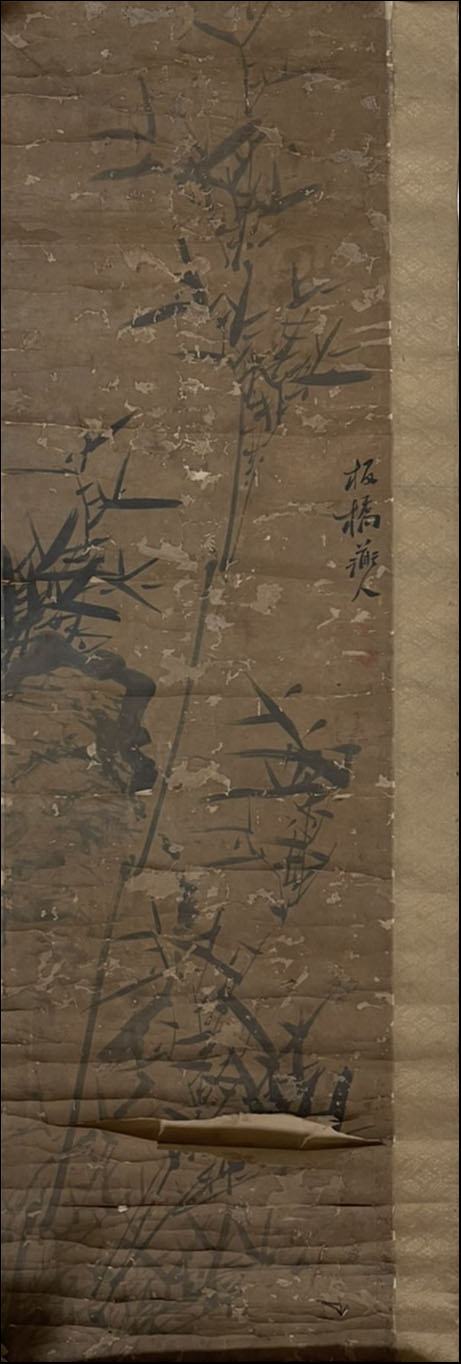 板橋道人